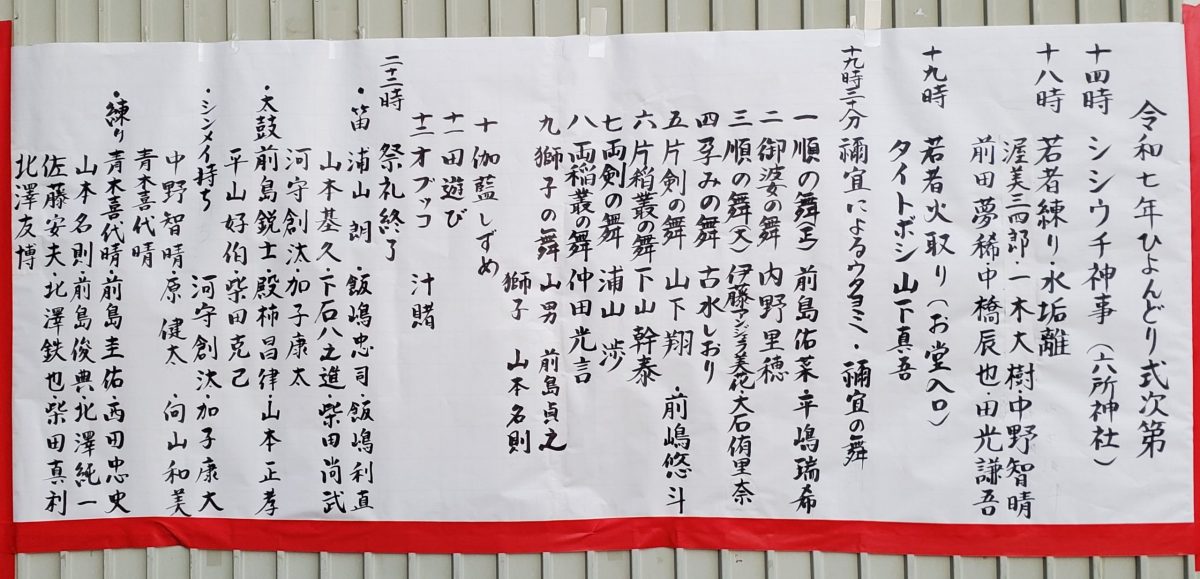 令和七年ひよんどり式次第
十四時 シシウチ神事(六所神社)
十八時 若者練り・水垢離
渥美三四郎・一木大樹中野智晴
前田夢稀中橋辰也・田光謙吾
十九時 若者火取り(お堂入口)
タイトボシ 山下真吾
十九時三十分 禰宜によるウタヨミ・禰宜の舞
一 順の舞 前島佑菜 平嶋瑞希
二 御婆の舞 内野里穂
三 順の舞(文) 伊藤アンジェラ美花大石侑里奈
四 孕みの舞 古水しおり
五 片剣の舞 山下翔・前嶋悠斗
六 片稲叢の舞 下山幹泰
七 両剣の舞 浦山渉
八 両稲叢の舞 仲田光言
九 獅子の舞 山男 前島貞之
獅子 山本名則
十 伽藍しずめ
十一 田遊び
十二 オブッコ 汁賭
二十二時 祭礼終了
・笛 浦山朗 飯嶋忠司・飯嶋利直
山本基久・下石八之進・柴田尚武
河守創汰・加子康太
・太鼓 前島鋭士 殿柿昌律・山本正孝
平山好伯・柴田克己
・シンメイ持ち 河守創汰・加子康大
中野智晴・原健太・向山和美
青木喜代晴
・練り 青木喜代晴・前島圭佑・西田忠史
山本名則・前島俊典・北澤純一
佐藤安夫・北澤鉄也・柴田真利
北澤友博